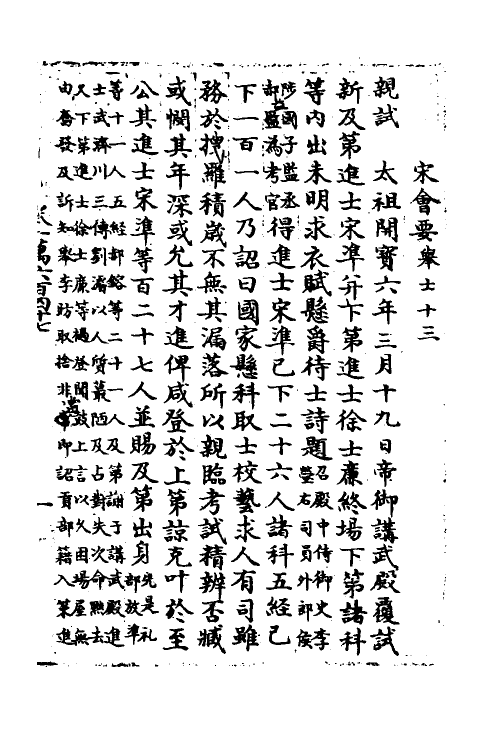 宋會要 舉士十三
親試 太祖開寶六年三月十九日帝御講武殿覆試
新及第進士宋準并下第進士徐士廉終場下第諸科
等內出未明求衣賦懸爵待士詩題召殿中侍御史李
瑩右司員外郎侯
陟國子監丞
郝益為考官得進士宋準已下二十六人諸科五經已
下一百一人乃詔曰國家懸科取士校藝求人有司雖
務於搜羅積歲不無其漏落所以親臨考試精辨否臧
或憫其年深或允其才進俾咸登於上第諒克叶於至
公其進士宋準等百二十七人並賜及第出身先是禮
部放準
等十一人五經郝鎔等二十一人及第謝于講武殿進
士武濟川三傳劉濬以人質最陋及占對失次命黜去
又下第進士徐士廉等撾登聞鼓上言以久困場屋無
由奮發及訴知舉李昉取捨非當即詔貢部籍入策進
卷一萬六百四十七
一